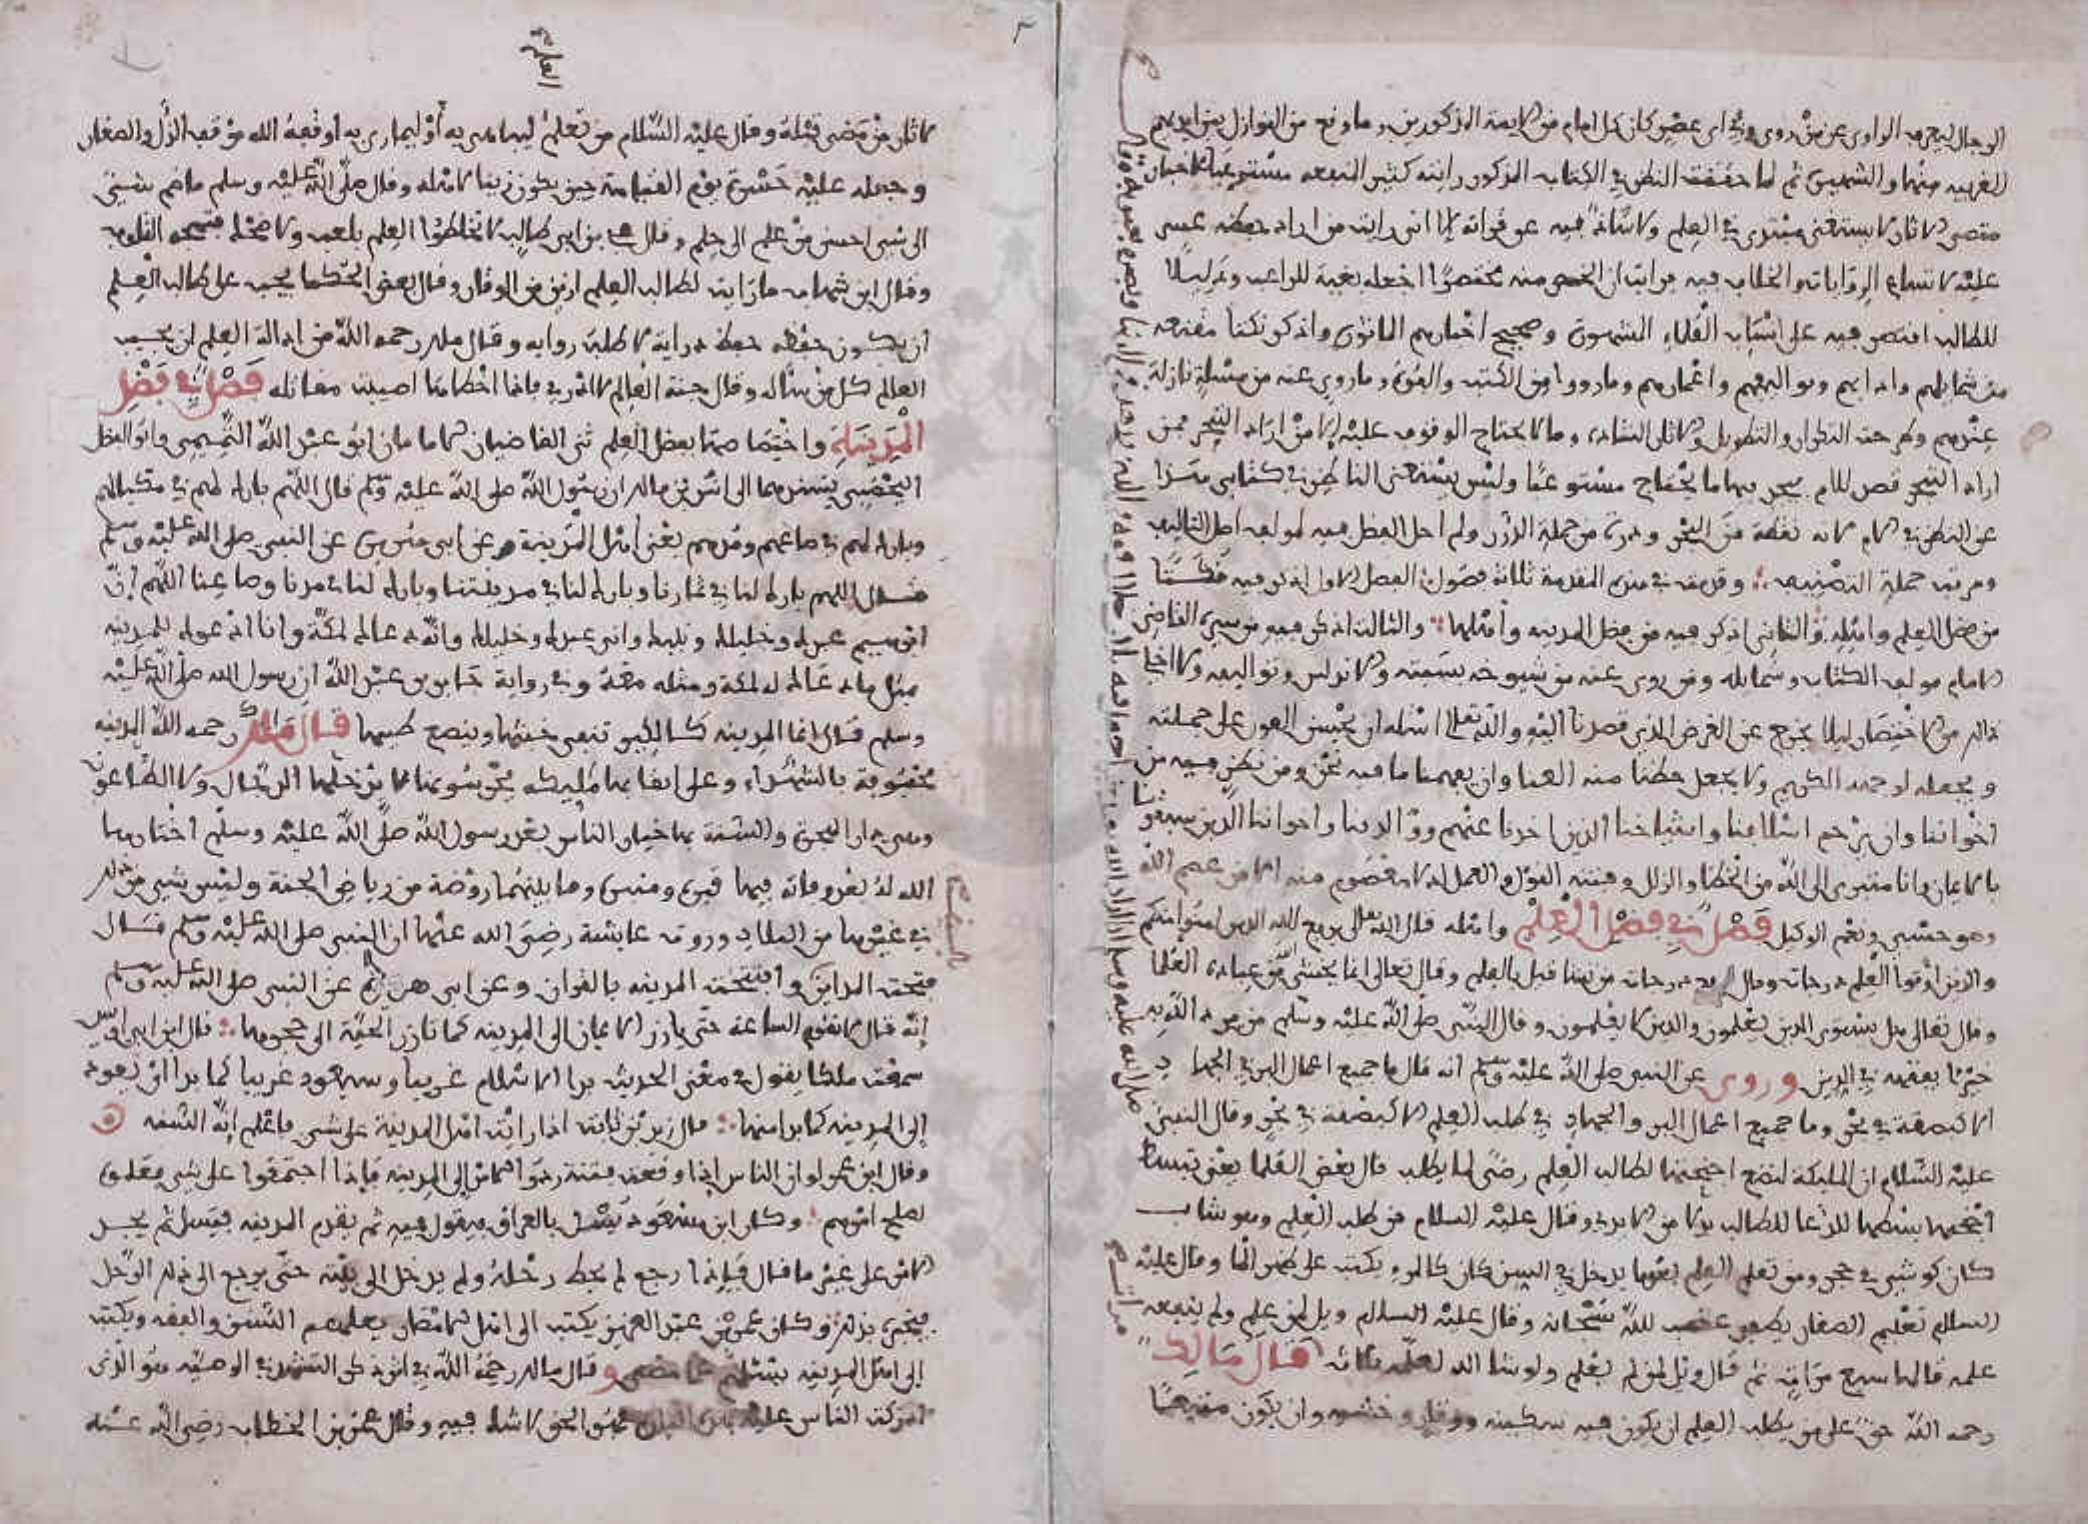 الرجال ليعرف الراوي عن من روى وفي أي عصر كان كل إمام من الايمة المذكورين وما وقع من النوازل بين أيديهم
الغريبه منها والشهيرة ثم لما حققت النظر في الكتاب المذكور رايته كثير المنفعه مستوعبا للاخبار
الاثار لا يستغني مبتدي في العلم ولا شاد فيه عن قراته إلا اني رايت من اراد حفظه عسر
عليه لاتساع الروايات والخلاف فيه فرايت ان اختصر منه مختصرا اجعله بغية للراغب
للطالب اقتصر فيه على العلماء المشهورة وصحيح اخبارهم الماثورة واذكر نكتا مقنعه
من شمايلهم وادابهم وتواليفهم واعمارهم وما رووا من الكتب وما روي عنه من مسئلة نازلة
عندهم وطرحت التكرار والتطويل وما لا يحتاج الوقوف عليه الا من اراد التبحر فمن
اراد التبحر قصد للام يجد بها ما يحتاج مستوعبا وليس يستغني الناظر في كتابي هذا
عن النظر في الام لانه نقطة من البحر ودرة من جملة الدرر ولم اخل الفضل فيه لمولفه اصل التاليف
ومرتب جملة التصنيف وقد في هذه المقدمة ثلاثة فصول الفصل الاول اذكر فيه
من فضل العلم واهله والثاني اذكر فيه من فضل المدينه واهلها والثالث اذكر فيه من سيرة القاضي
الامام مولف الكتاب وشمايله ومن روى عنه من شيوخه بسبته والاندلس وتواليفه
ذلك من الاختصار ليلا يخرج عن الغرض الذي قصدنا اليه والله تعالى اسئله ان يحسن العون على جملته
ويجعله لوجهه الكريم ولا يجعل حظنا منه العنا وان يفهمنا ما فيه نحن ومن نظر فيه من
اخواننا وان يرحم اسلافنا واشياخنا الذين اخذنا عنهم ووالدينا واخواننا الذين سبقونا
بالايمان وانا متبرئ الى الله من الخطا والزلل وفتنه القول والعمل اذ لا معصوم منه الا من عصم الله
وهو حسبي ونعم الوكيل فصل في فضل العلم واهله قال الله تعالى يرفع الله الذين امنوا منكم
والذين اوتوا العلم درجات وقال نرفع درجات من نشا قيل بالعلم وقال تعالى انما يخشى الله من عباده العلما
وقال تعالى هل يستوي الذين يعلمون والذين لا يعلمون وقال النبي صلى الله عليه وسلم من يرد الله به
خيرا يفقهه في الدين وروي عن النبي صلى الله عليه وسلم انه قال ما جميع اعمال البر في الجهاد
الا كبصقة في بحر وما جميع اعمال البر والجهاد في طلب العلم الا كبصقة في بحر وقال النبي
عليه السلام ان المليكة لتضع اجنحتها لطالب العلم رضى لما يطلب قال بعض العلما يعني تبسط
اجنحتها للدعا للطالب بدلا من الايدي وقال عليه السلام من طلب العلم وهو شاب
كان كوشي في حجر ومن تعلم العلم بعدما يدخل في السن كان كالمرء يكتب على ظهر الما وقال عليه
السلام تعليم الصغار يطفي غضب الله سبحانه وقال عليه السلام ويل لمن علم ولم ينفعه
علمه قالها سبع مرات ثم قال ويل لمن لم يعلم ولو شا الله لعلمه ثلاثا قال مالك
رحمه الله حق على من يطلب العلم ان يكون فيه سكينه ووقار وخشيه وان يكون متبعا
لاثار من مضى قبله وقال عليه السلام من تعلم ليباهي به أو ليماري به اوقفه الله موقف الذل والصغار
وجعله عليه حسرة يوم القيامة حين يكون زينا لاهله وقال صلى الله عليه وسلم ما ضم شيئ
الى شي احسن من علم الى حلم وقال علي بن ابي طالب لا تخلطوا العلم بلعب ولا ضحك فتمجه القلوب
وقال ابن شهاب ما رايت لطالب العلم ازين من الوقار وقال بعض الحكما يجب على طالب العلم
ان يكون حفظه حفظ دراية لا طلب روايه وقال ملك رحمه الله من اذالة العلم ان يجيب
العالم كل من سأله وقال جنة العالم لا ادري فاذا اخطاها اصيبت مقاتله فصل في فضل
المدينة واختصاصها بفضل العلم ثنى القاضيان الامامان ابو عبد الله التميمي وابو الفضل
اليحصبي بسندهما الى انس بن مالك ان رسول الله صلى الله عليه وسلم قال اللهم بارك لهم في مكيالهم
وبارك لهم في صاعهم ومدهم يعني اهل المدينة وعن ابي هريرة عن النبي صلى الله عليه وسلم
قال اللهم بارك لنا في ثمارنا وبارك لنا في مدينتنا وبارك لنا في مدنا وصاعنا اللهم إن
ابرهيم عبدك وخليلك ونبيك واني عبدك وخليلك وانه دعاك لمكة وانا ادعوك للمدينه
بمثل ما دعاك له لمكة ومثله معه وفي رواية جابر بن عبد الله ان رسول الله صلى الله عليه
وسلم قال انما المدينه كالكير تنفي خبثها وينصع طيبها قال ملك رحمه الله المدينه
محفوفة بالشهداء وعلى انقابها مليكه يحرسونها لا يدخلها الدجال ولا الطاعون
وهي دار الهجرة والسنة بها خيار الناس بعد رسول الله صلى الله عليه وسلم اختارها
الله له بعد وفاته فيها قبره ومنبره وما بينهما روضة من رياض الجنة وليس شي من ذلك
في غيرها من البلاد وروت عايشة رضي الله عنها ان النبي صلى الله عليه وسلم قال
فتحت المداين وافتتحت المدينه بالقران وعن ابي هريرة عن النبي صلى الله عليه وسلم
إنه قال لا تقوم الساعة حتى يارز الايمان الى المدينه كما تارز الحية الى جحرها قال ابن ابي اويس
سمعت ملكا يقول في معنى الحديث بدا الاسلام غريبا وسيعود غريبا كما بدا اي يعود
إلى المدينه كما بدا منها قال زيد بن ثابت اذا رايت اهل المدينة على شي فاعلم إنه السنه
وقال ابن عمر لو ان الناس اذا وقعت فتنة ردوا الامر إلى المدينه فإذا اجتمعوا على شي فعلوه
لصلح امرهم وكان ابن مسعود يسئل بالعراق فيقول فيه ثم يقدم المدينه فيسئل ثم يجد
الامر على غير ما قال فإذا رجع لم يحط رحله ولم يدخل الى بيته حتى يرجع الى ذلك الرجل
فيخبره بذلك وكان عمر بن عبد العزيز يكتب الى اهل الامصار يعلمهم السنن والفقه ويكتب
إلى اهل المدينه يسئلهم عما مضى وقال مالك رحمه الله
ادركت الناس عليه لا شك فيه وقال عمر بن الخطاب رضي الله عنه